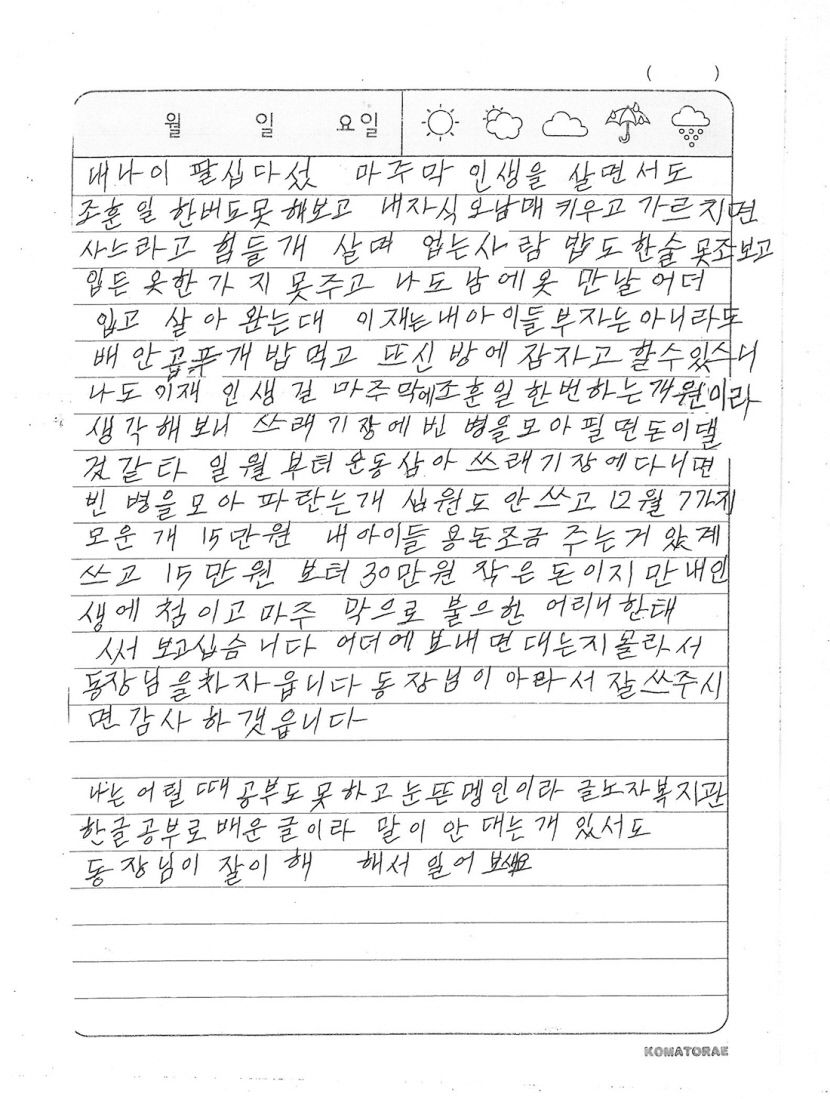 ( )
월 일 요일
내나이 팔십다섰 마주막 인생을 살면서도
조훈일 한버도못 해보고 내자식 오남매 키우고 가르치면
사느라고 힘들개 살며 업는사람 밥도 한술 못조보고
입든 옷한가지 못주고 나도 남에옷 만날 어더
입고 살아 완는대 이재는 내아이들 부자는아니라도
배 안곱푸개 밥먹고 뜨신 방에 잠자고 할수있스니
나도 이재 인생길 마주막에조훈일 한번하는개원이라
생각해 보니 쓰래기장에 빈 병을모아 필면돈이댈
겄같타 일월 부터 운동삼아 쓰래기장에다니면
빈 병을 모아 파란는개 십원도 안쓰고 12월 7가지
모운개 15만원 내아이들 용돈조금 주는거 았계
쓰고 15만원 보터 30만원 작은돈이지만 내인
생에 첨이고 마주막으로 불으한 어리니한태
써보고십슴니다 어더에 보내면 대는지 몰라서
동장님을차자읍니다 동장님이 아라서 잘쓰주시
면감사하갯읍니다
나는 어릴때 공부도못하고 눈뜬멩인이라 글노자복지관
한글공부로 배운 글이라 말이 안 대는개 있서도
동장님이 잘이해 해서 일어 보새요
KOMATORAE